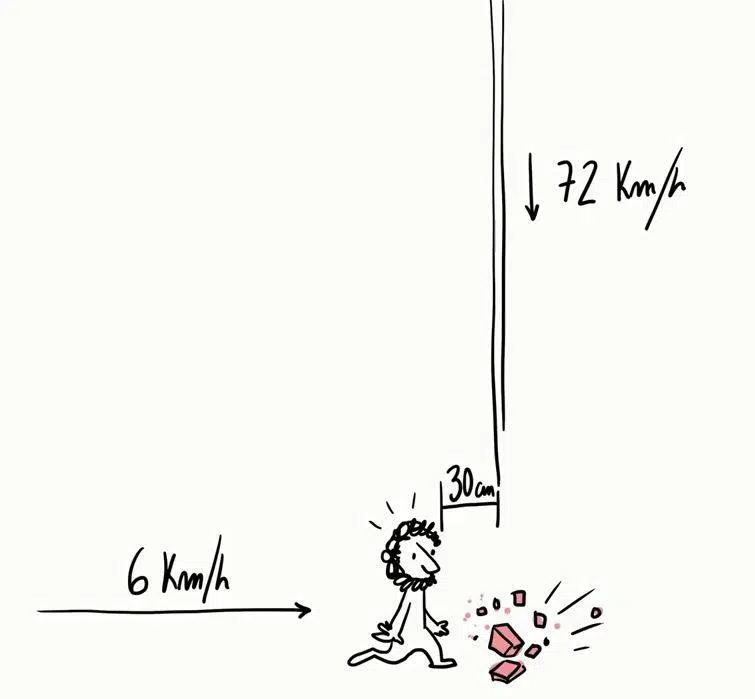 72 Km/h
30cm
6 Km/h